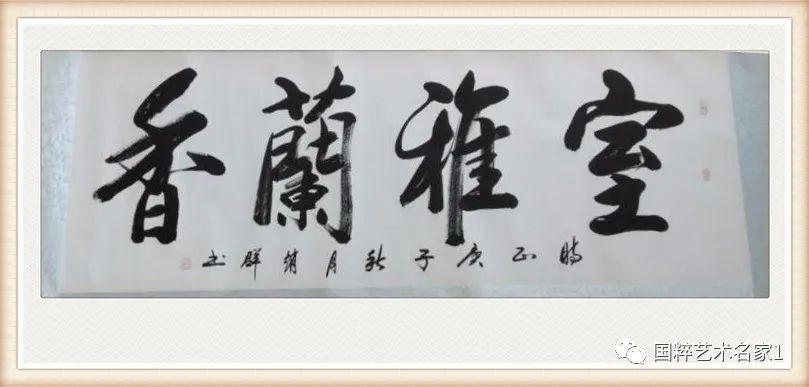 室雅蘭香
時庚子秋月群书
国粹艺术名家1